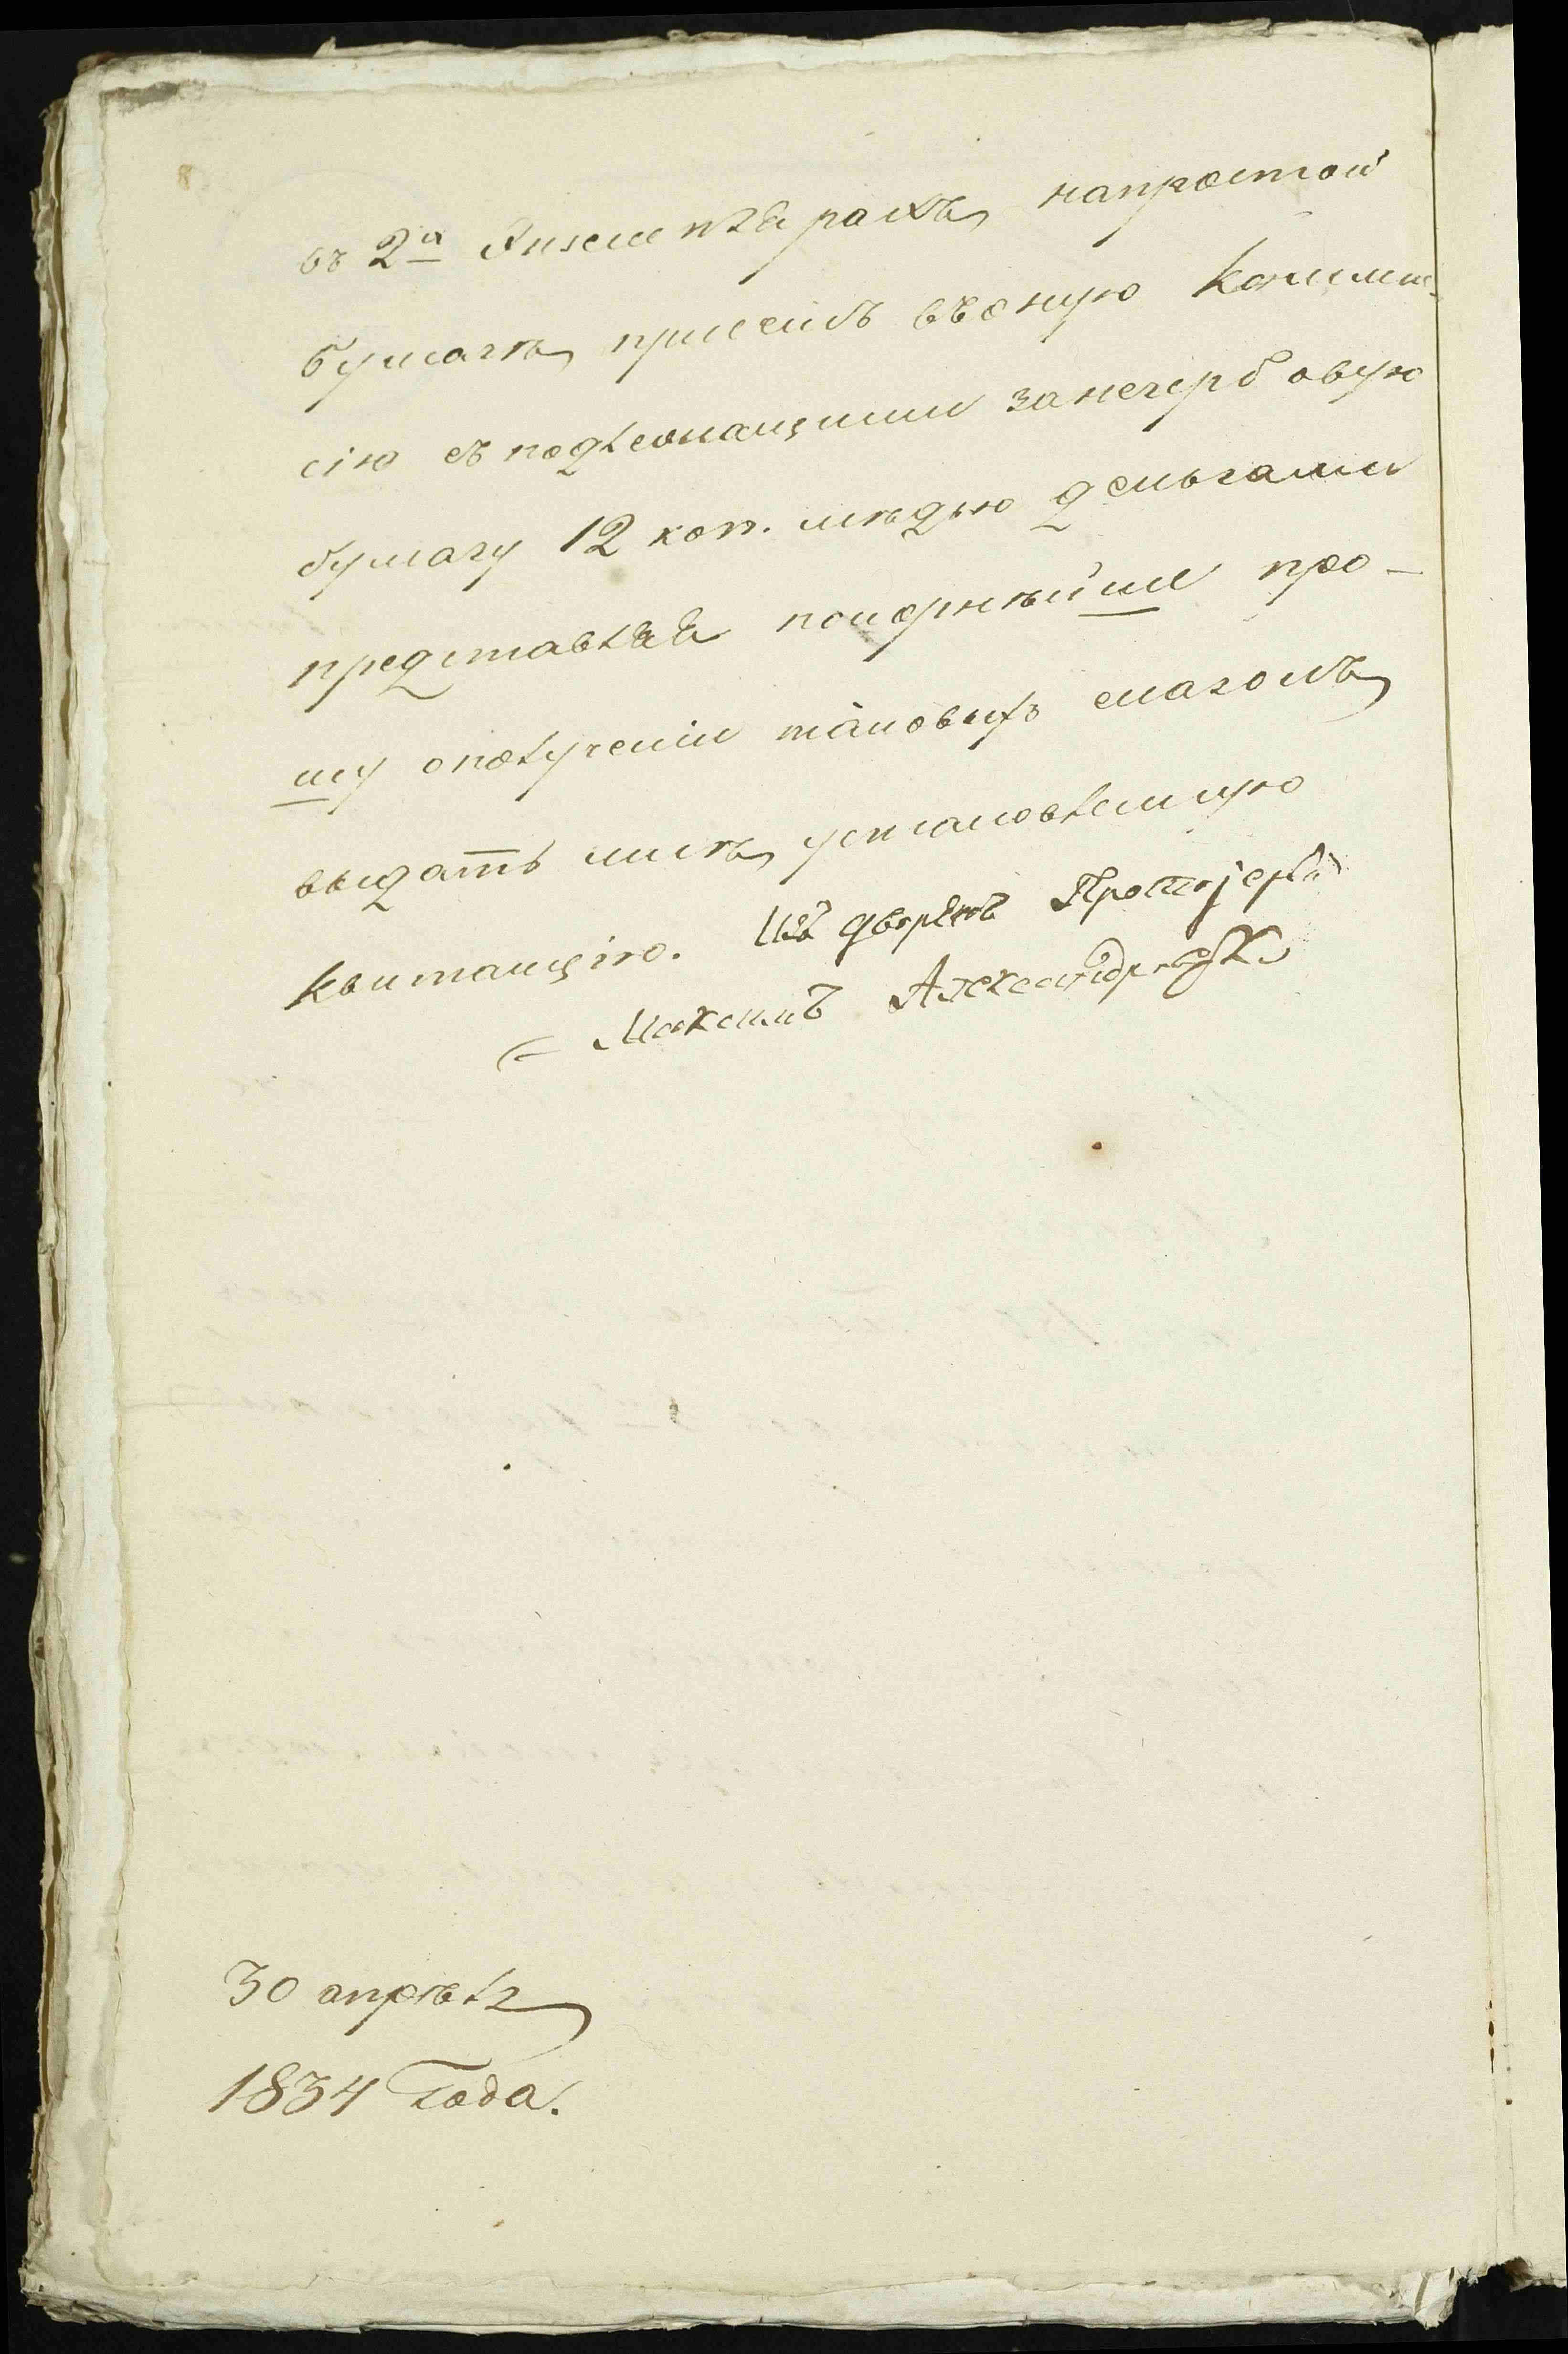 въ 2х Экземплярахъ, напростой
бумагѣ, при семъ въ оную Коммис-
сію съ подлежащими занегербовую
бумагу 12 коп. мѣдью деньгами
представляя покорнѣйше про-
шу ополученіи таковыхъ
выдать мнѣ, установленную
квитанцію. Изъ дворянъ Протоіерей
Максимъ Александр
30 апрѣля
1834 Года.